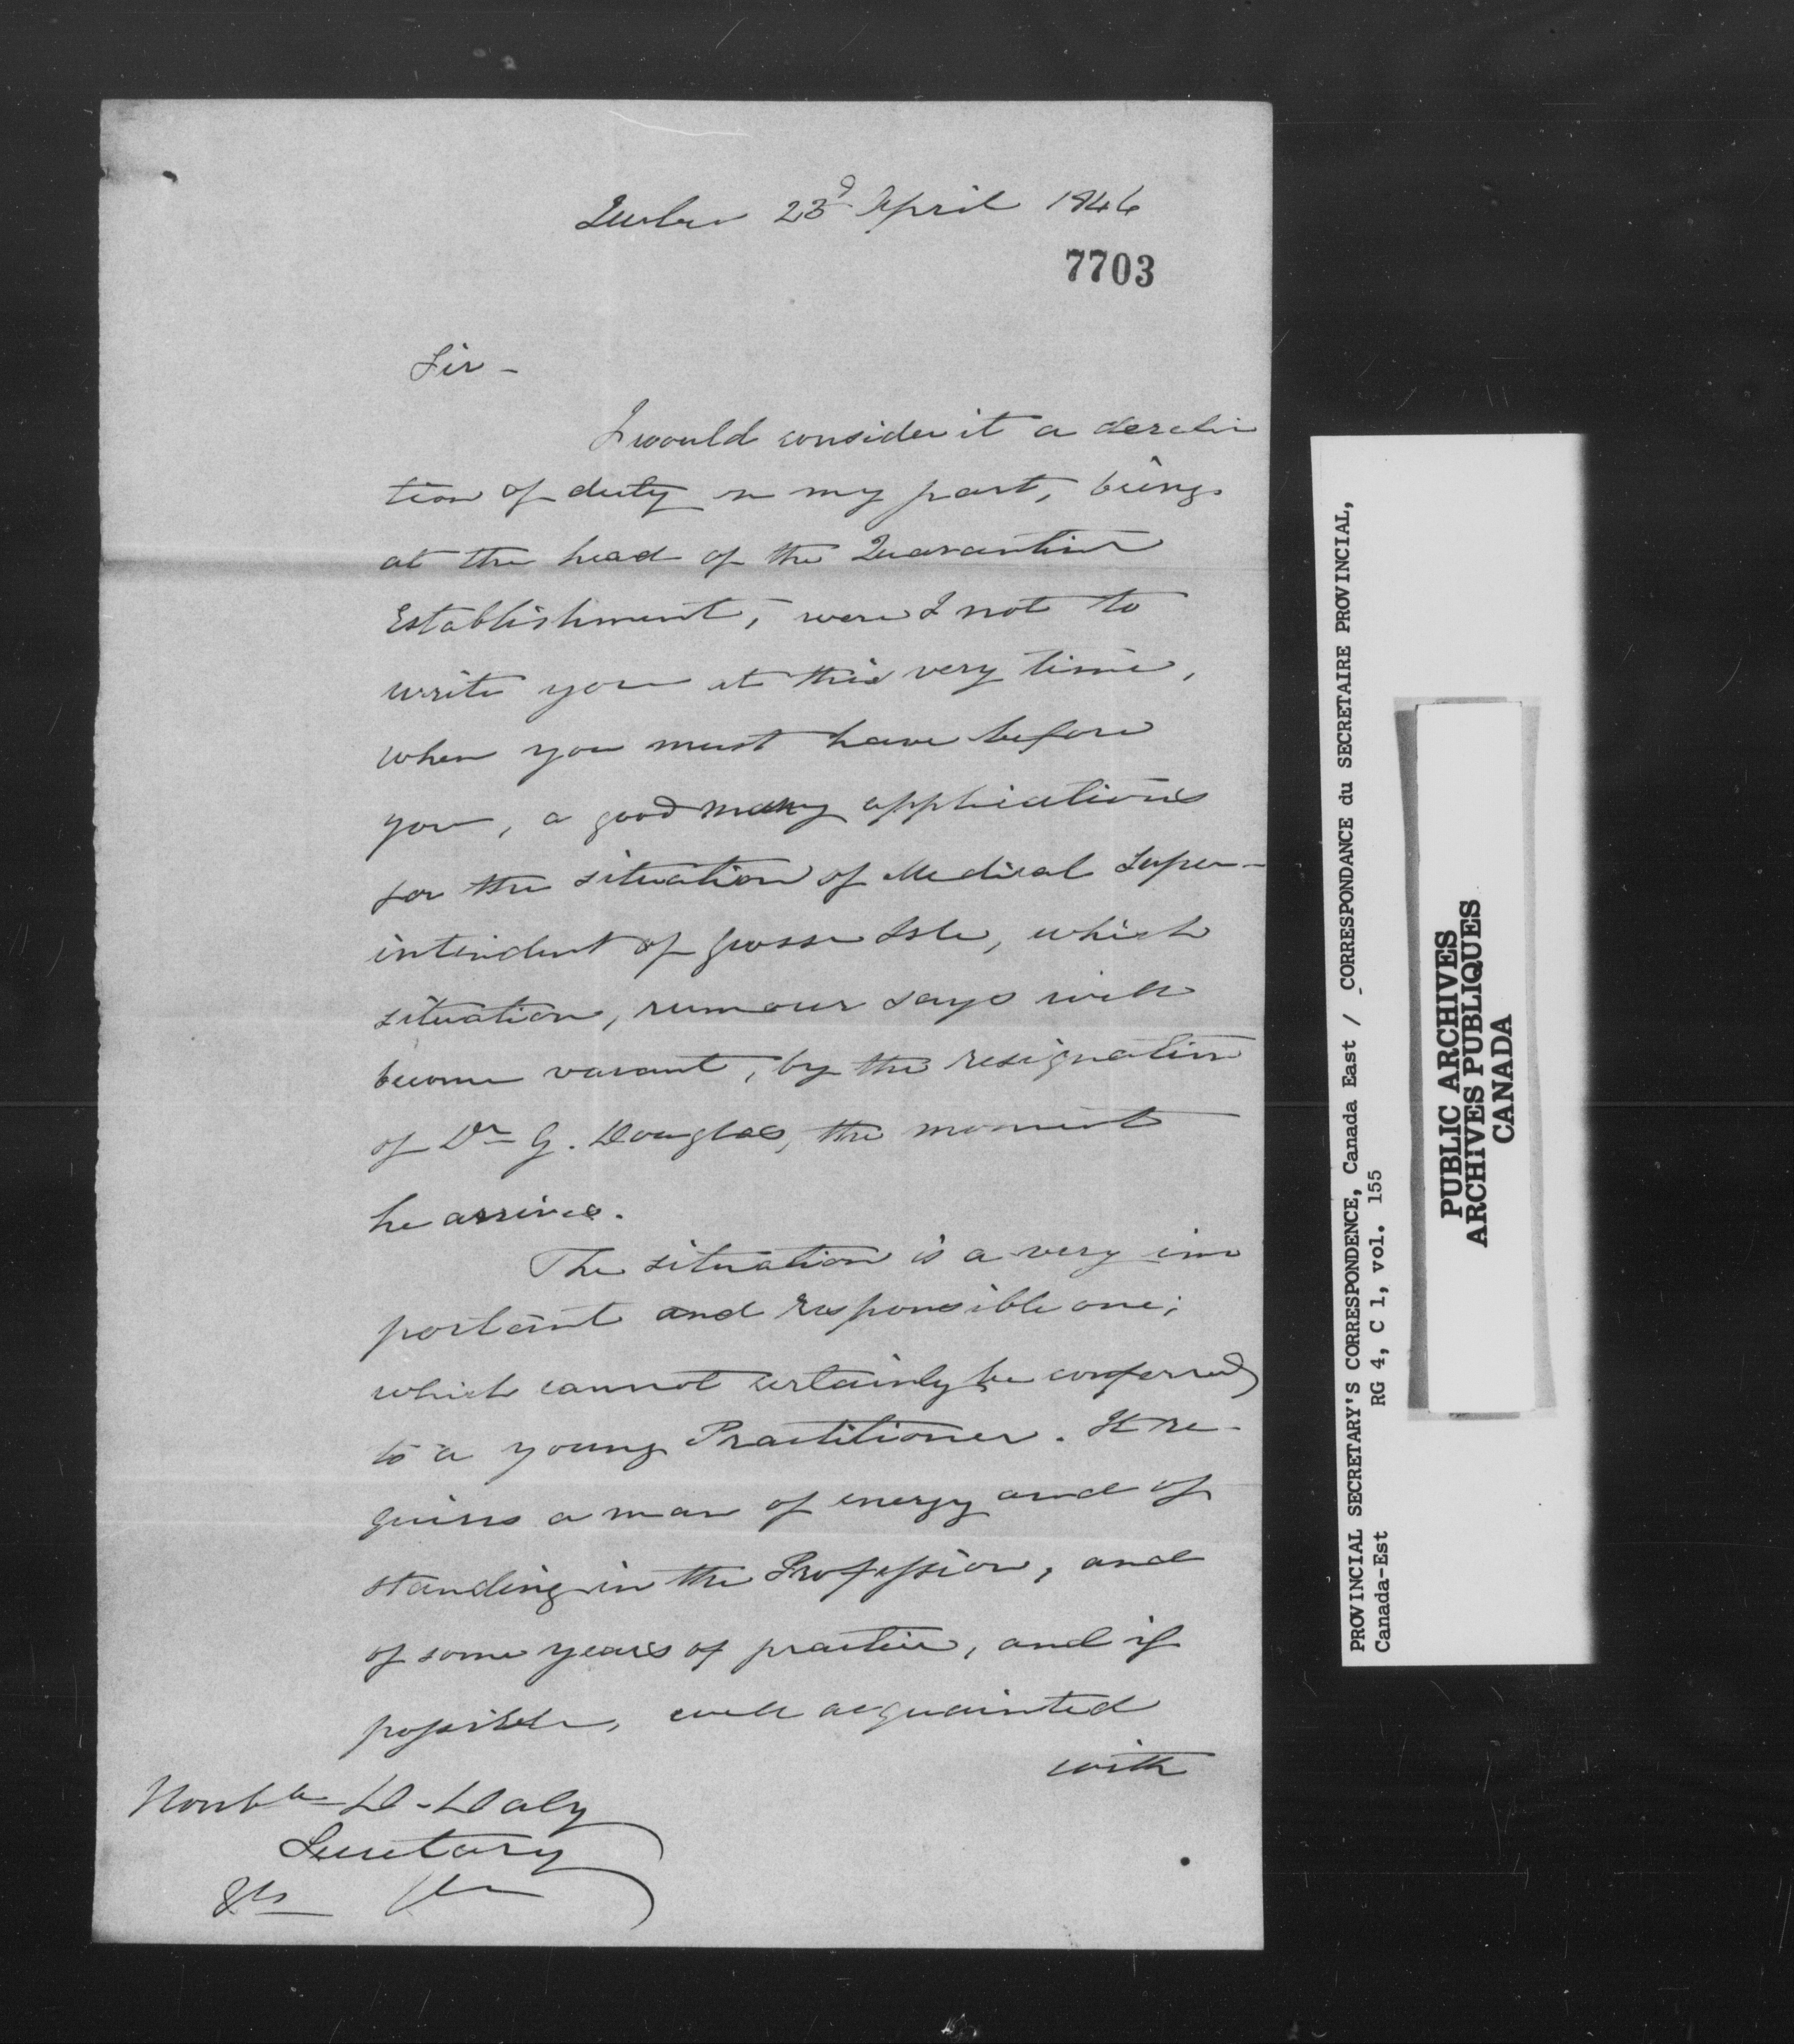 Quebec 23d April 1846
7703
Sir -
I would consider it a derelic
tion of duty on my part, being
at the head of the Quarantine
Establishment, were I not to
write you at this very time,
when you must have before
you, a good many applications
for the situation of Medical Super-
intendent of Grosse Isle, which
situation, rumour says will
become vacant, by the resignation
of Dr G. Douglas, the moment
he arrives.
The situation is a very im
portant and responsible one;
which cannot certainly be conferred
to a young Practitioner. It re-
quires a man of energy and of
standing in the Profession, and
of some years of practice, and if
possible, well acquainted
with
Honble D. Daly
Secretary
&c &c
PROVINCIAL SECRETARY'S CORRESPONDENCE, Canada East / CORRESPONDANCE du SECRETAIRE PROVINCIAL,
Canada-Est RG 4, C 1, vol. 155
PUBLIC ARCHIVES
ARCHIVES PUBLIQUES
CANADA